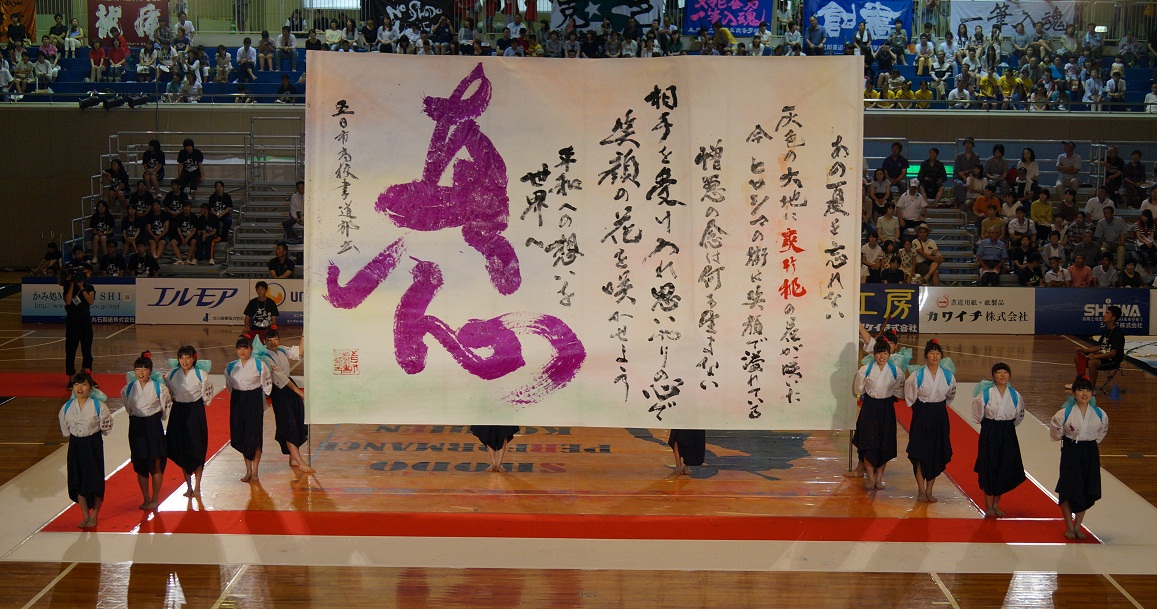 一筆入魂
創書
あの夏を忘れない
灰色の大地に夾竹桃の花が咲いた
今ヒロシマの街は笑顔で溢れている
憎悪の念は何も生まない
相手を受け入れ思いやりの心で
笑顔の花を咲かせよう
平和への想いを
世界へ
真心
五日市高校書道部
かみ処
エルモア
工房
書道用紙・紙製品
カワイチ株式会社
SHODO
PERFORMANCE
KOSHIEN